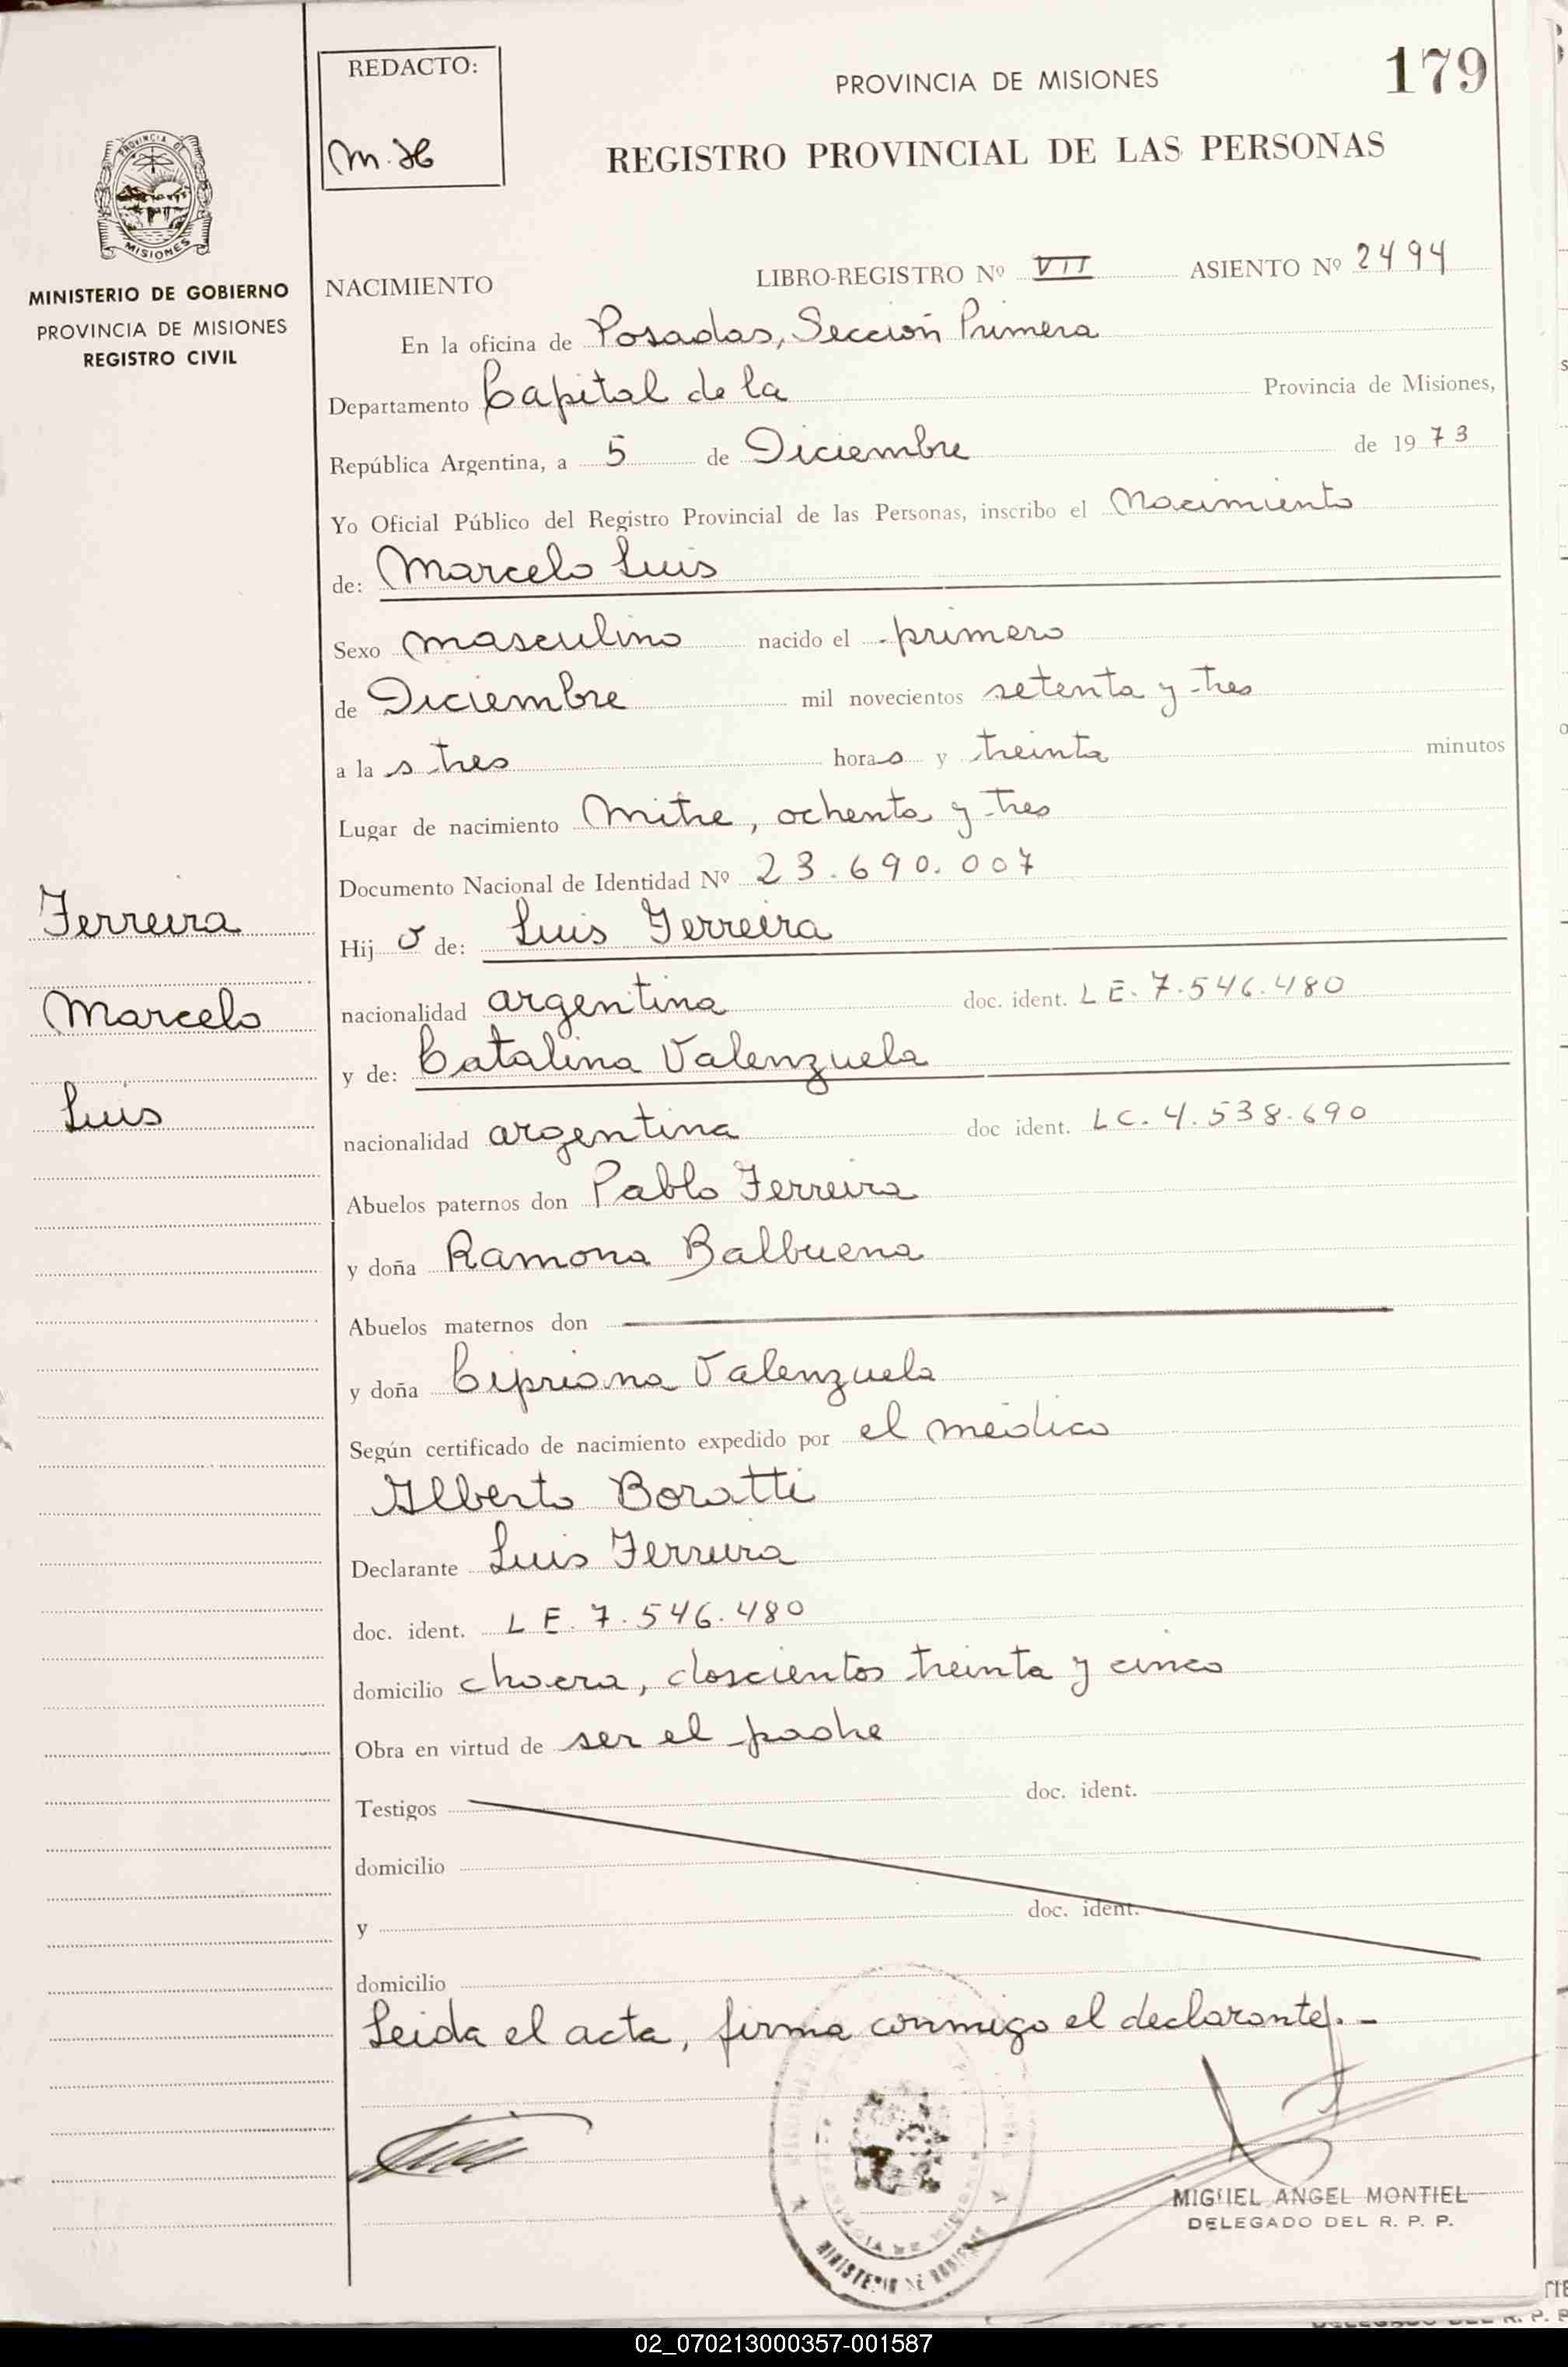 REDACTO:
M. H
PROVINCIA DE MISIONES
179
REGISTRO PROVINCIAL DE LAS PERSONAS
PROVINCIA DE
MISIONES
MINISTERIO DE GOBIERNO
PROVINCIA DE MISIONES
REGISTRO CIVIL
NACIMIENTO LIBRO-REGISTRO Nº VII ASIENTO Nº 2494
En la oficina de Posadas, Sección Primera
Departamento Capital de la Provincia de Misiones,
República Argentina, a 5 de Diciembre de 1973
Yo Oficial Público del Registro Provincial de las Personas, inscribo el Nacimiento
de: Marcelo Luis
Sexo masculino nacido el primero
de Diciembre mil novecientos setenta y tres
a las tres horas y treinta minutos
Lugar de nacimiento Mitre, ochenta y tres
Documento Nacional de Identidad Nº 23.690.007
Ferreira
Marcelo
Luis
Hijo de: Luis Ferreira
nacionalidad argentina doc. ident. LE. 7.546.480
y de: Catalina Valenzuela
nacionalidad argentina doc ident. LC. 4.538.690
Abuelos paternos don Pablo Ferreira
y doña Ramona Balbuena
Abuelos maternos don
y doña Cipriana Valenzuela
Según certificado de nacimiento expedido por el médico
Alberto Boratti
Declarante Luis Ferreira
doc. ident. LE. 7.546.480
domicilio chacra, doscientos treinta y cinco
Obra en virtud de ser el padre
Testigos doc. ident.
domicilio
y doc. ident.
domicilio
Leida el acta, firma conmigo el declarante.-
MINISTERIO DE GOBIERNO
MIGUEL ANGEL MONTIEL
DELEGADO DEL R. P. P.
02_070213000357-001587